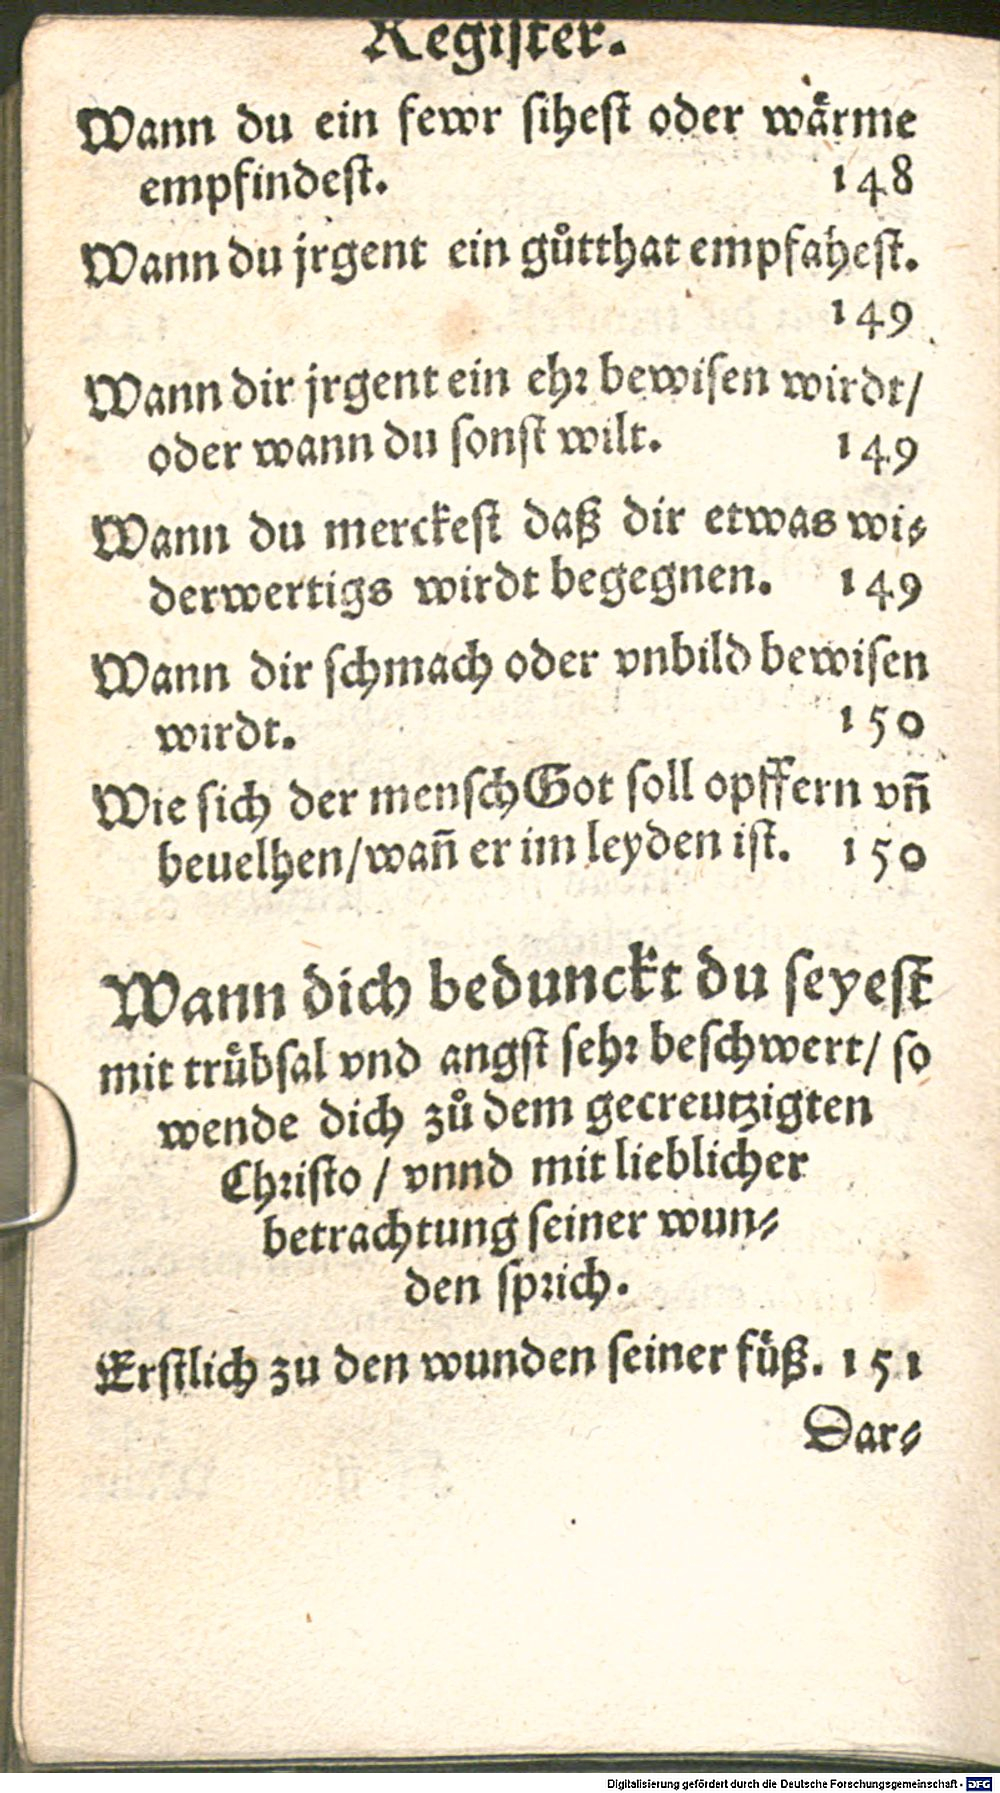 Register.
Wann du ein fewr sihest oder wåͤrme
empfindest. 148
Wann du jrgent ein gůtthat empfahest.
149
Wann dir jrgent ein ehr bewisen wirdt/
oder wann du sonst wilt. 149
Wann du merckest daß dir etwas wi⸗
derwertigs wirdt begegnen. 149
Wann dir schmach oder vnbild bewisen
wirdt. 150
Wie sich der mensch Got soll opffern vñ
beuelhen/wañ er im leyden ist. 150
Wann dich bedunckt du seyest
mit truͤbsal vnd angst sehr beschwert/ so
wende dich zů dem gecreutzigten
Christo / vnnd mit lieblicher
betrachtung seiner wun⸗
den sprich.
Erstlich zu den wunden seiner fuͤß. 151
Dar⸗
Digitalisierung gefördert durch die Deutsche Forschungsgemeinschaft - DFG